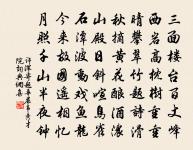 三面樓台百丈峰
西岩高枕樹重重
晴攀翠竹題詩滑
秋摘黃花釀酒濃
山殿日斜喧鳥雀
石潭波動戲魚龍
今來故國遙相憶
月照千山半夜鐘
許渾寄題華嚴韋秀才
院詞典網書